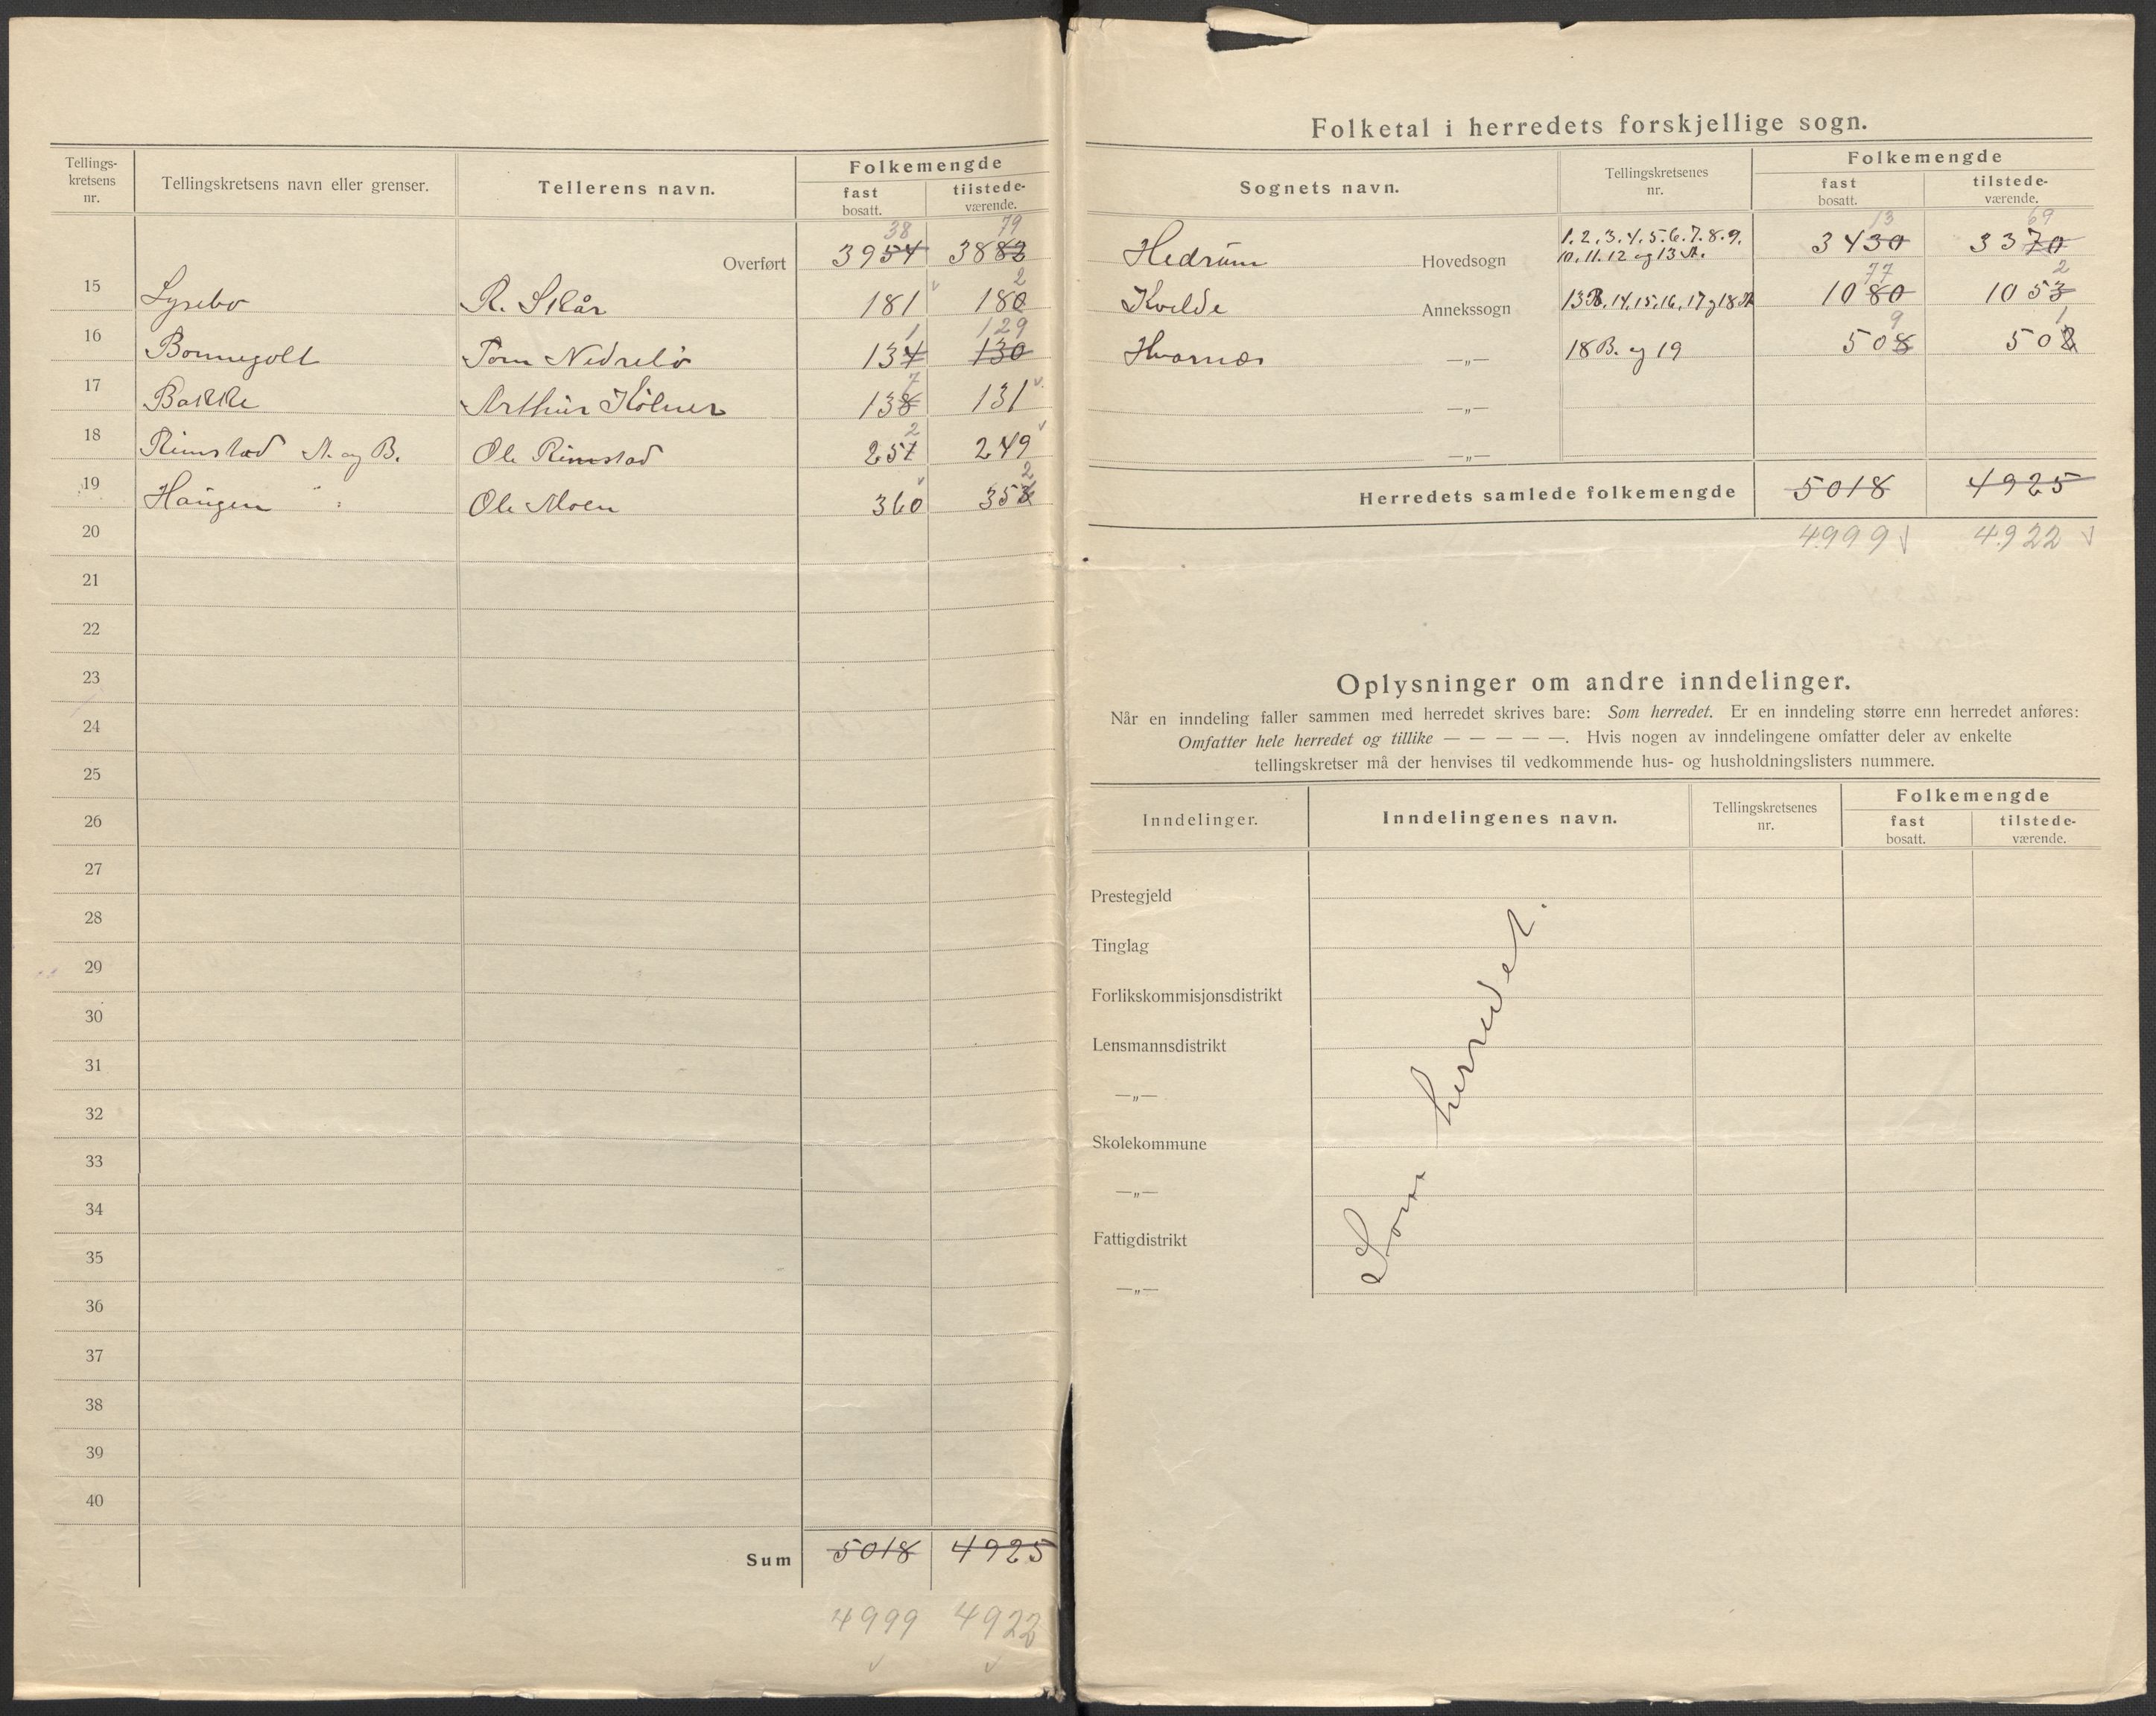 Tellings-
kretsens
nr.
Tellingskretsens navn eller grenser.
Tellerens navn.
Folkemengde
fast
bosatt.
tilstede-
værende.
38 79
Overført 3954 3882
2
15 Lysebo R. Skår 181 180
1 129
16 Bonnegolt Tom Nedrebø 134 130
7
17 Bakke Arthur Hölner 138 131
2
18 Rimstad A. og B. Ole Rimstad 251 249
2
19 Haugen Ole Moen 360 353
20
21
22
23
24
25
26
27
28
29
30
31
32
33
34
35
36
37
38
39
40
Sum 5018 4925
4999 4922
Folketal i herredets forskjellige sogn.
Sognets navn.
Tellingskretsenes
nr.
Folkemengde
fast
bosatt.
tilstede-
værende.
13 69
1.2.3.4.5.6.7.8.9.
Hedrum Hovedsogn 10.11.12 og 13 A. 3430 3370
77 2
Kvelde Annekssogn 13B.14.15.16.17 og 18 A 1080 1053
9 1
Hvarnes —„— 18 B. og 19 508 502
—„—
—„—
Herredets samlede folkemengde 5018 4925
4999 4922
Oplysninger om andre inndelinger.
Når en inndeling faller sammen med herredet skrives bare: Som herredet. Er en inndeling større enn herredet anføres:
Omfatter hele herredet og tillike — — — — —. Hvis nogen av inndelingene omfatter deler av enkelte
tellingskretser må der henvises til vedkommende hus- og husholdningslisters nummere.
Inndelinger.
Inndelingenes navn.
Tellingskretsenes
nr.
Folkemengde
fast
bosatt.
tilstede-
værende.
Prestegjeld
Tinglag
Forlikskommisjonsdistrikt
Lensmannsdistrikt
—„—
Skolekommune
—„—
Fattigdistrikt
—„—
Som herredet.